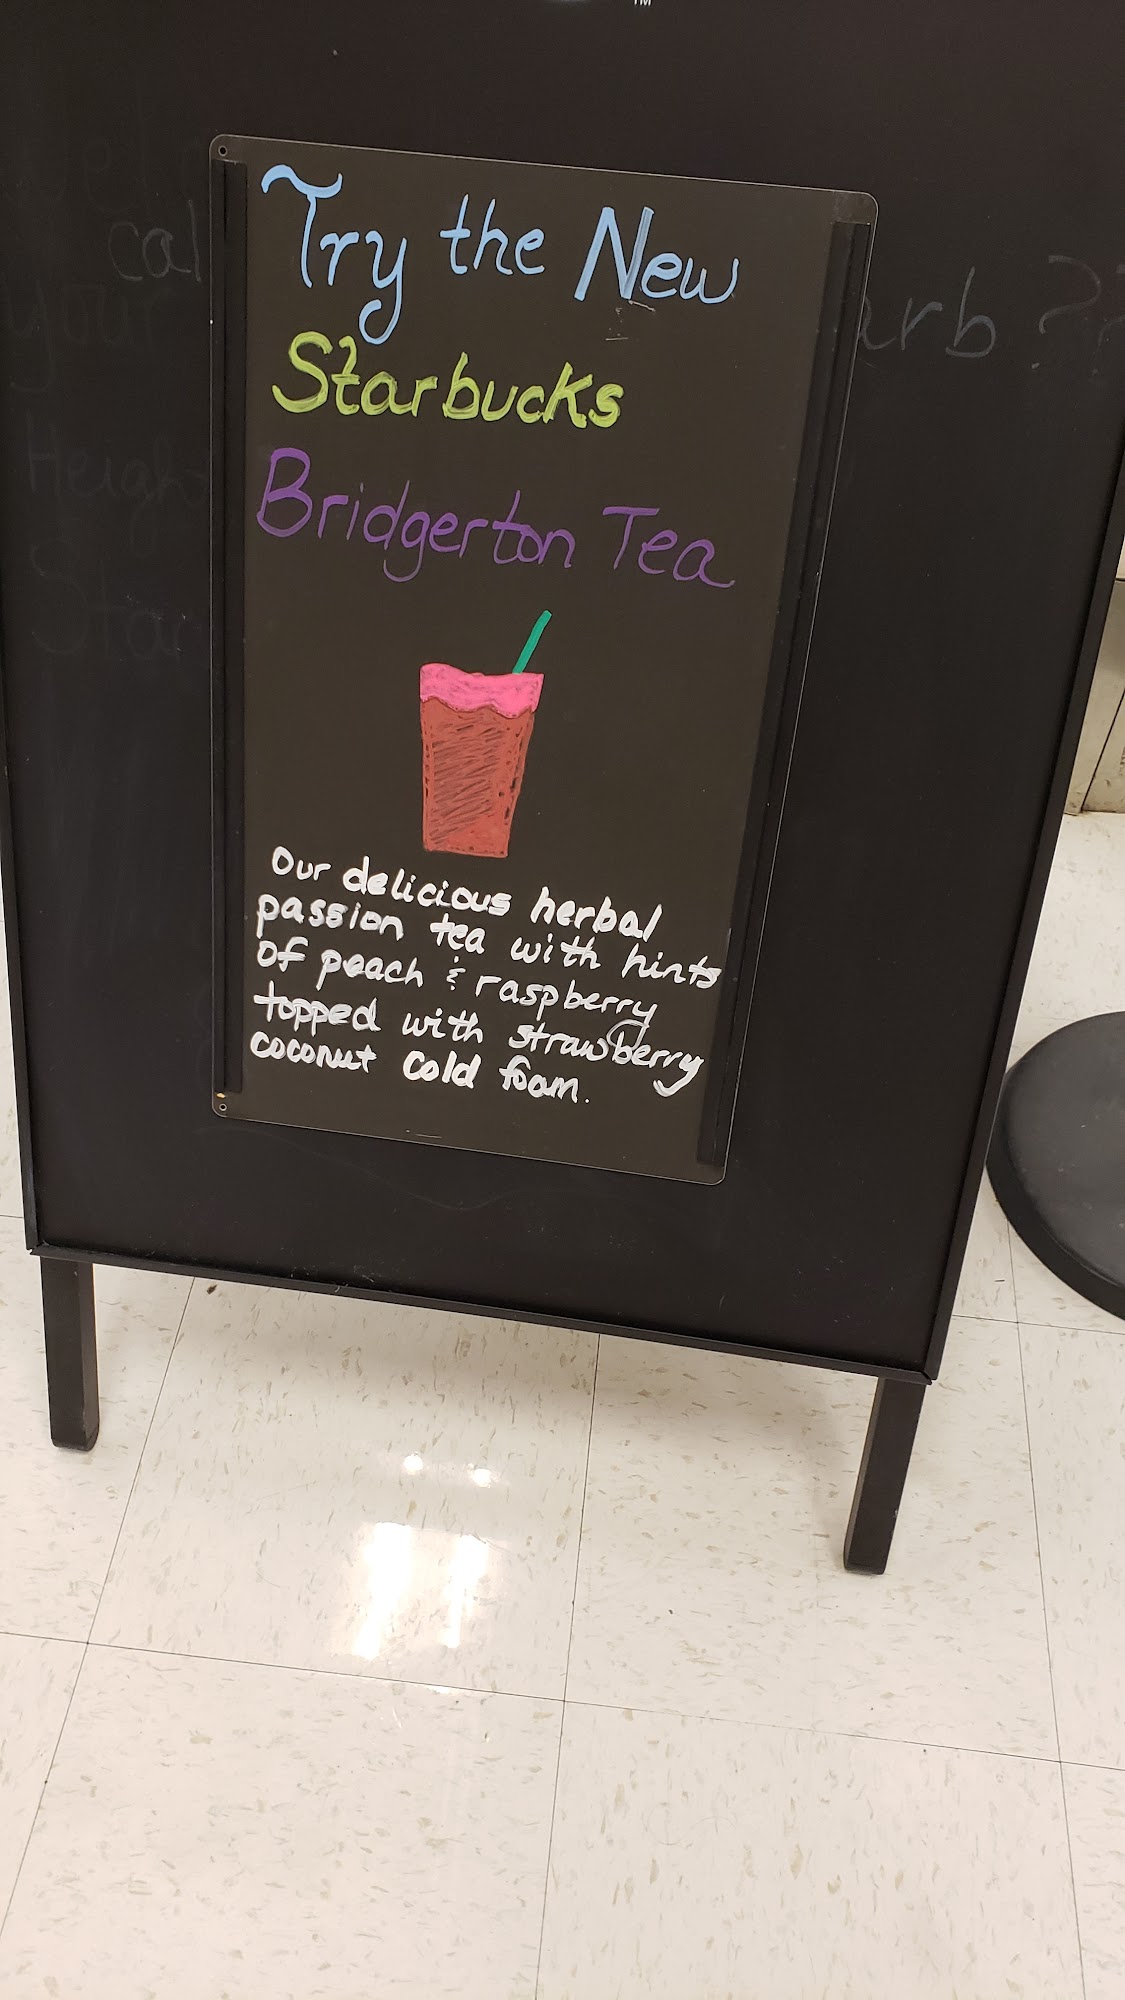 TM
Try the New
Starbucks
Bridgerton Tea
Our delicious herbal
passion tea with hints
of peach & raspberry
topped with strawberry
coconut cold foam.